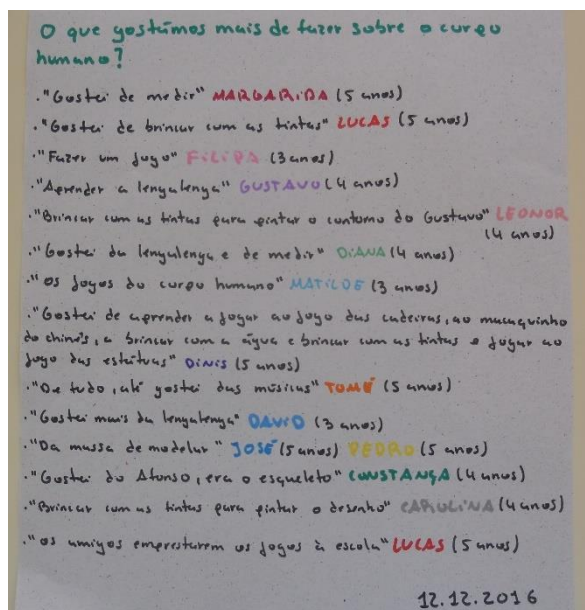 O que gostámos mais de fazer sobre o corpo
humano?
."Gostei de medir" MARGARIDA (5 anos)
."Gostei de brincar com as tintas" LUCAS (5 anos)
."Fazer um jogo" FILIPA (3 anos)
."Aprender a lengalenga" GUSTAVO (4 anos)
."Brincar com as tintas para pintar o contorno do Gustavo" LEONOR
(4 anos)
."Gostei da lengalenga e de medir" DIANA (4 anos)
."Os jogos do corpo humano" MATILDE (3 anos)
."Gostei de aprender a jogar ao jogo das cadeiras, ao macaquinho
do chinês, a brincar com a água e brincar com as tintas e jogar ao
jogo das estátuas" DINIS (5 anos)
."De tudo, até gostei das músicas" TOMÉ (5 anos)
."Gostei mais da lengalenga" DAVID (3 anos)
."Da massa de modelar" JOSÉ (5 anos) PEDRO (5 anos)
."Gostei do Afonso, era o esqueleto" CONSTANÇA (4 anos)
."Brincar com as tintas para pintar o desenho" CAROLINA (4 anos)
."Os amigos emprestarem os jogos à escola" LUCAS (5 anos)
12.12.2016